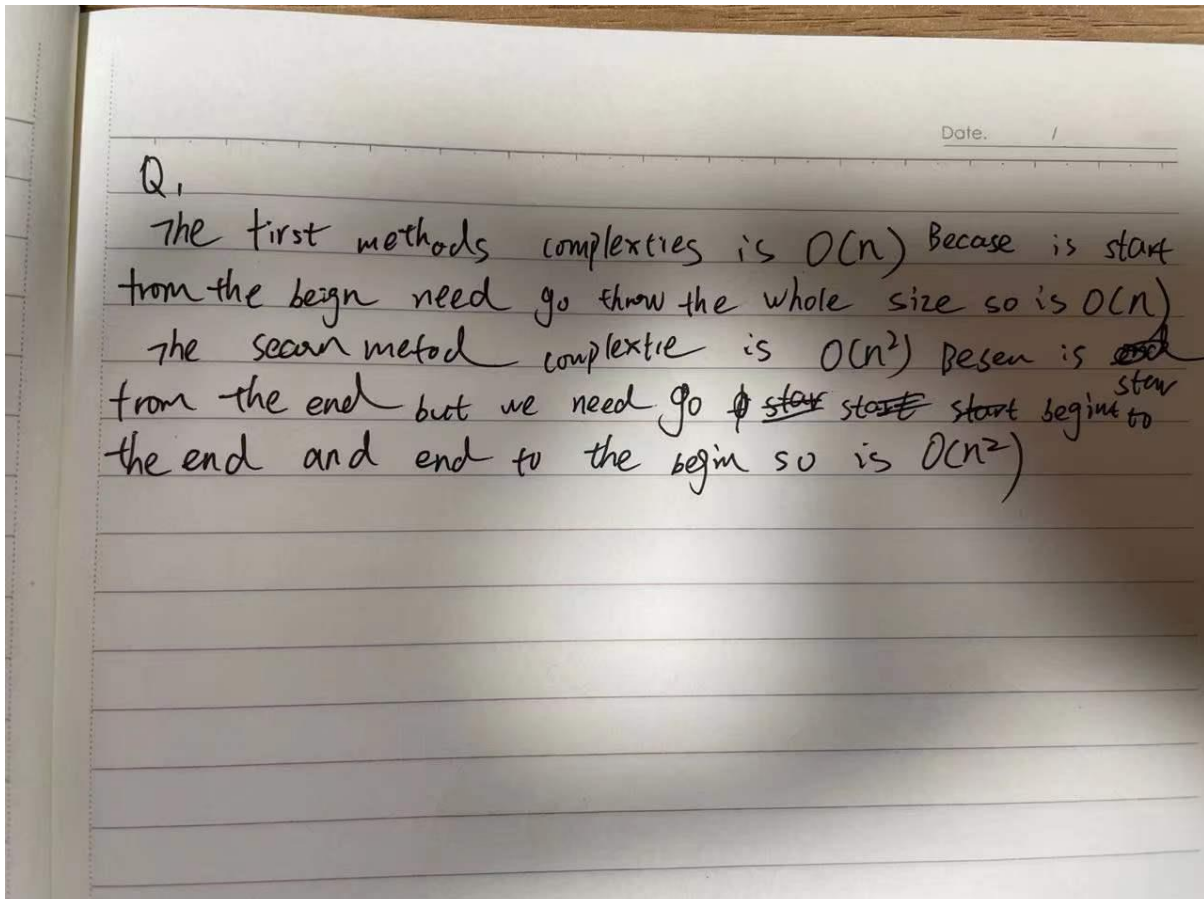 Date. /
Q1
The first methods complexties is O(n) Becase is start
from the beign need go throw the whole size so is O(n)
The secon metod complextie is O(n²) Besen is
stew
from the end but we need go start begint to
the end and end to the begin so is O(n²)